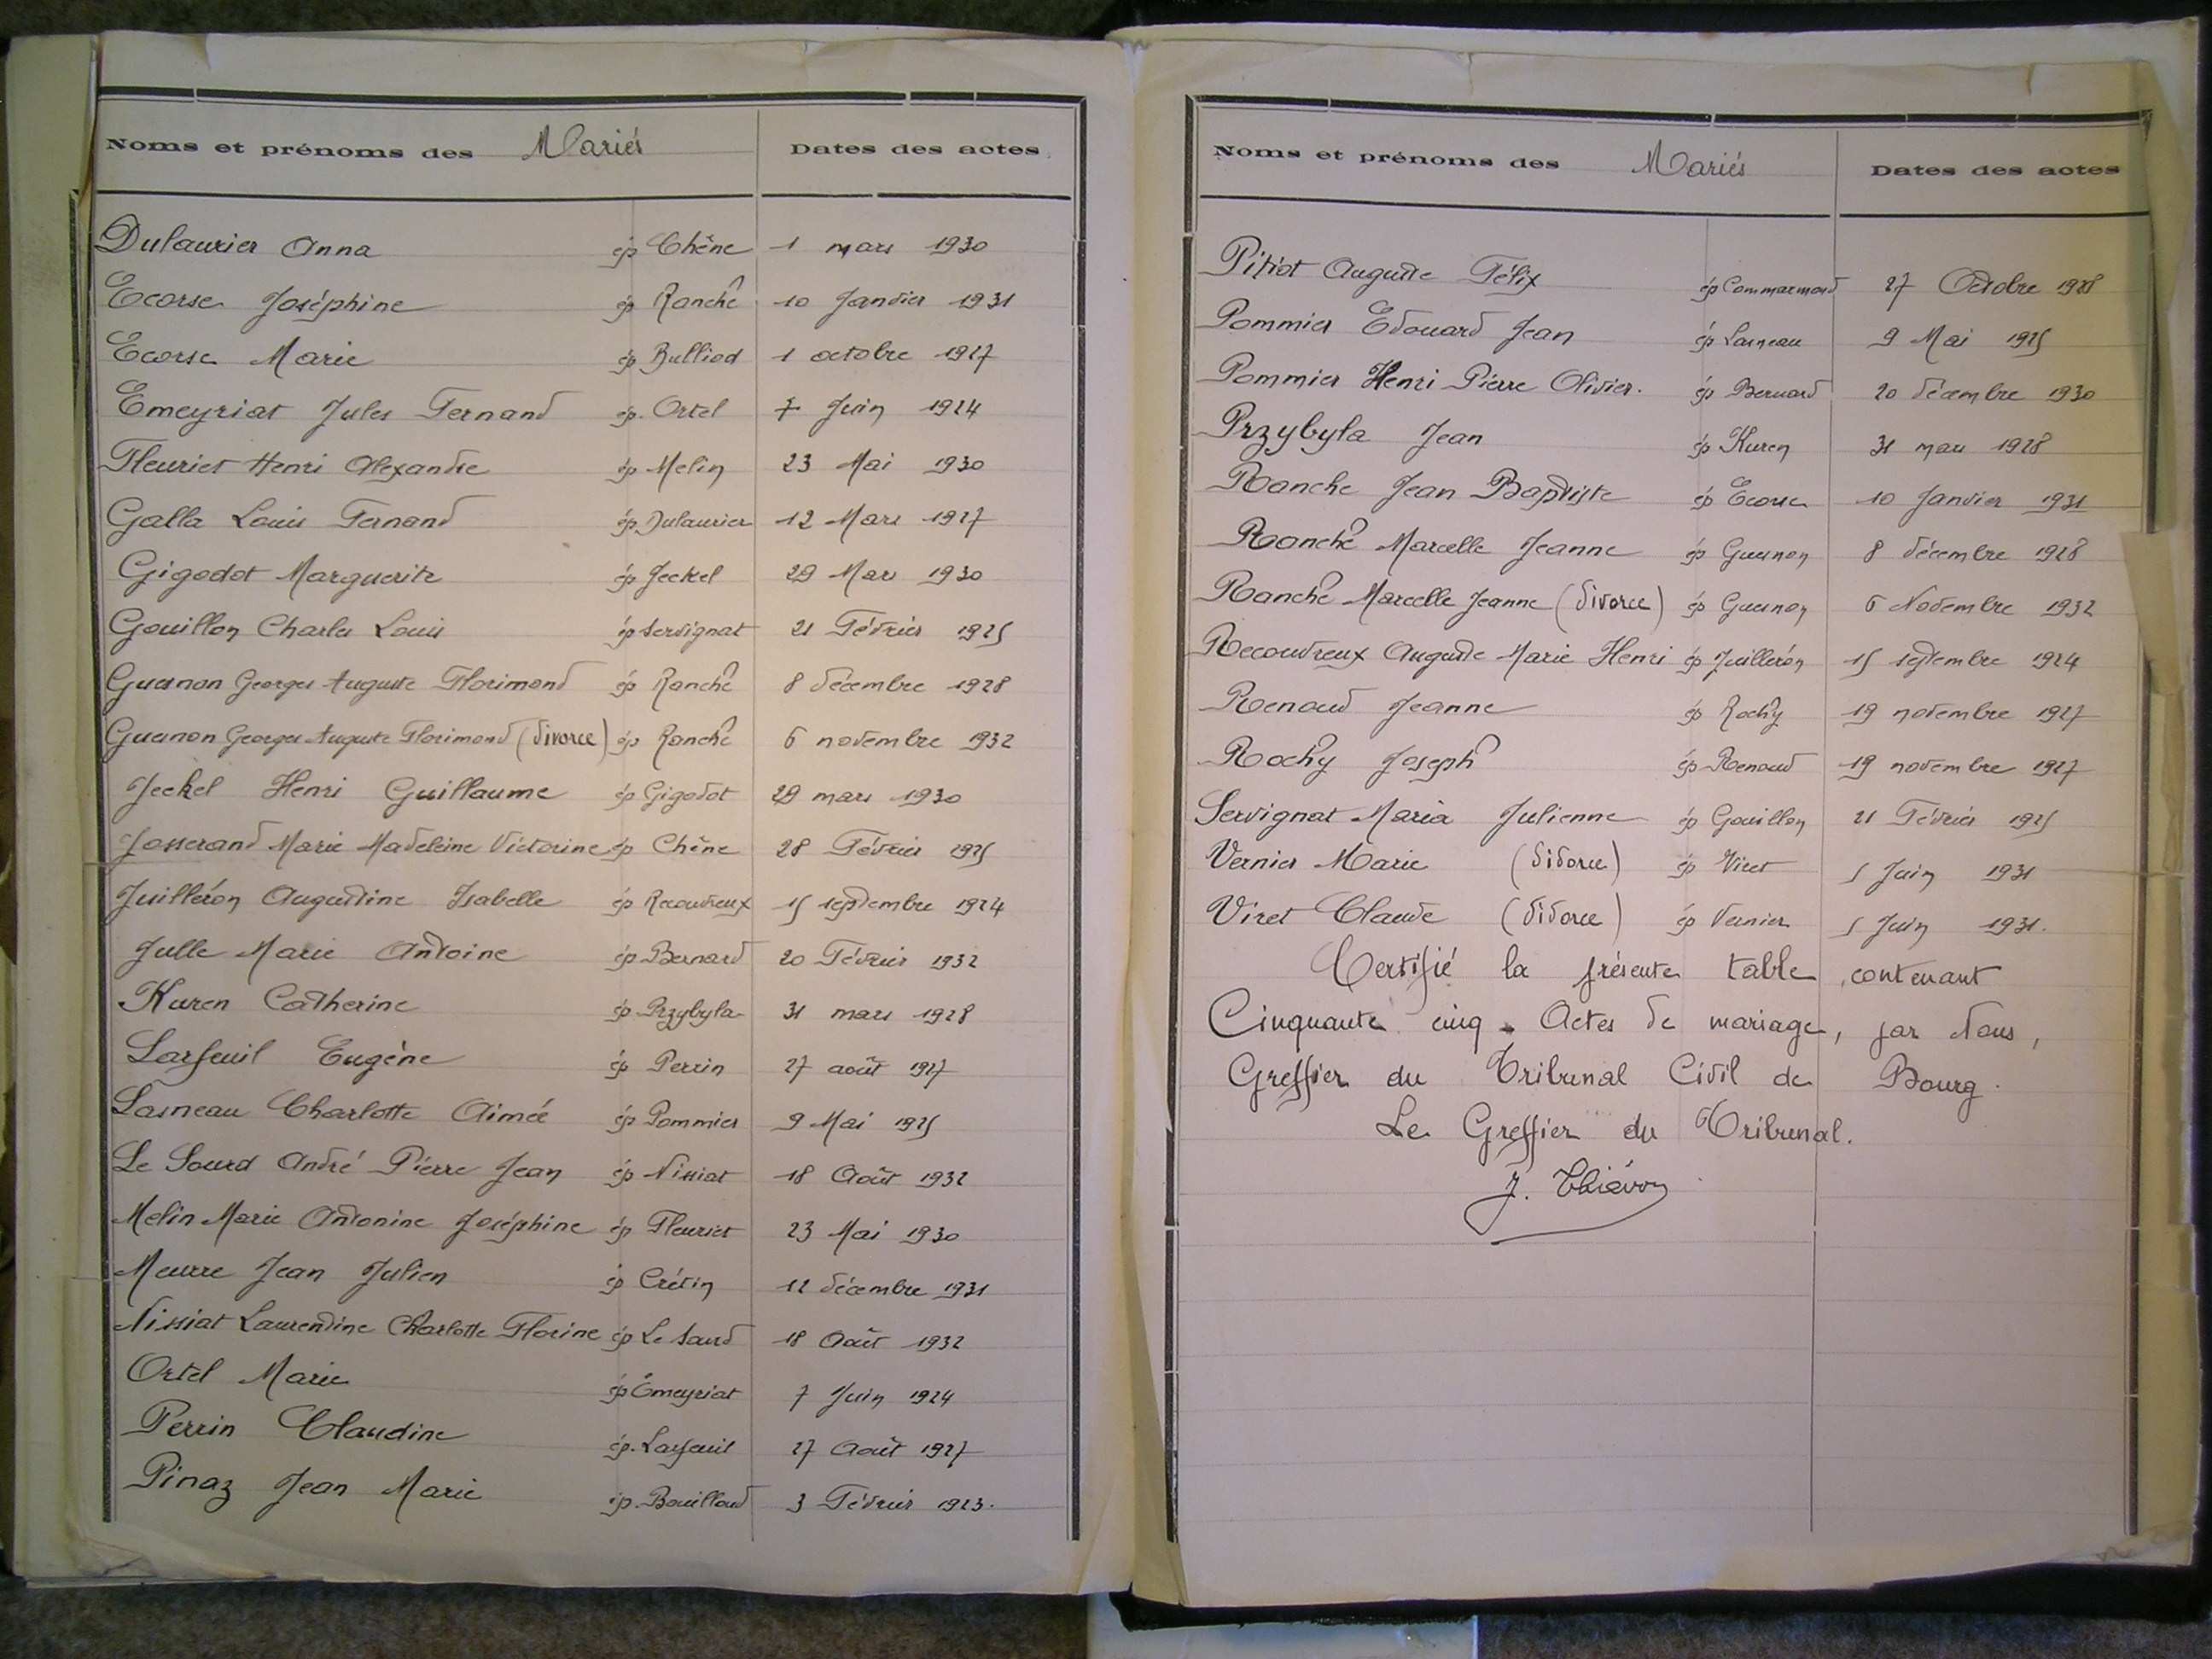 Noms et prénoms des Mariés Dates des actes
Dulaurier Anna ép Chêne 1 mars 1930
Ecorse Joséphine ép Ranche 10 Janvier 1931
Ecorse Marie ép Bulliod 1 octobre 1927
Emeyriat Jules Fernand ép. Ortel 7 Juin 1924
Fleuriet Henri Alexandre ép Melin 23 Mai 1930
Galla Louis Fernand ép. Dulaurier 12 Mars 1927
Gigodot Marguerite ép Jeckel 29 Mars 1930
Gouillon Charles Louis ép Servignat 21 Février 1925
Guenon Georges Auguste Florimond ép Ranche 8 décembre 1928
Guenon Georges Auguste Florimond (divorce) ép Ranche 6 novembre 1932
Jeckel Henri Guillaume ép Gigodot 29 mars 1930
Josserand Marie Madeleine Victorine ép Chêne 28 Février 1925
Juilléron Augustine Isabelle ép Recouvreux 15 septembre 1924
Julle Marie Antoine ép Bernard 20 Février 1932
Kuren Catherine ép Przybyla 31 mars 1928
Larfeuil Eugène ép Perrin 27 août 1927
Lasneau Charlotte Aimée ép Pommier 9 Mai 1925
Le Sourd André Pierre Jean ép Nissiat 18 Août 1932
Melin Marie Antonine Joséphine ép Fleuriet 23 Mai 1930
Meurre Jean Julien ép Crétin 12 décembre 1931
Nissiat Laurentine Charlotte Florine ép Le Sourd 18 Août 1932
Ortel Marie ép Emeyriat 7 Juin 1924
Perrin Claudine ép. Larfeuil 27 Août 1927
Pinaz Jean Marie ép. Bouilloud 3 Février 1923.
Noms et prénoms des Mariés Dates des actes
Pitiot Auguste Félix ép Commarmond 27 Octobre 1928
Pommier Edouard Jean ép Lasneau 9 Mai 1925
Pommier Henri Pierre Olivier. ép Bernard 20 décembre 1930
Przybyla Jean ép Kuren 31 mars 1928
Ranche Jean Baptiste ép Ecorse 10 Janvier 1931
Ranche Marcelle Jeanne ép Guenon 8 décembre 1928
Ranche Marcelle Jeanne (divorce) ép Guenon 6 Novembre 1932
Recouvreux Auguste Marie Henri ép Juilléron 15 septembre 1924
Renaud Jeanne ép Rochy 19 novembre 1927
Rochy Joseph ép Renaud 19 novembre 1927
Servignat Maria Julienne ép Gouillon 21 Février 1925
Vernier Marie (divorce) ép Viret 5 Juin 1931
Viret Claude (divorce) ép Vernier 5 Juin 1931.
Certifié la présente table, contenant
Cinquante cinq Actes de mariage, par Nous,
Greffier du Tribunal Civil de Bourg.
Le Greffier du Tribunal.
J. Thiévon